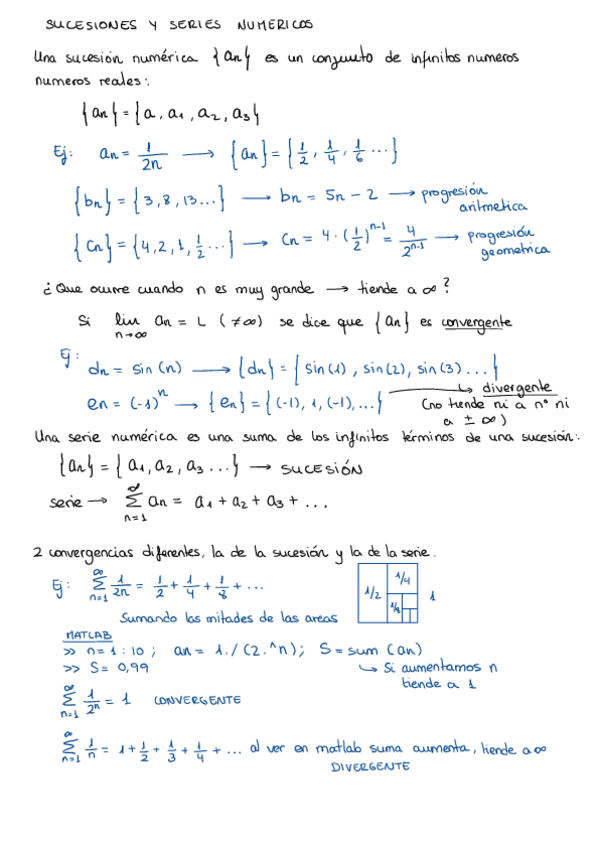 SUCESIONES Y SERIES NUMERICOS
Una sucesión numérica {an} es un conjunto de infinitos numeros
numeros reales:
{an} = {a, a₁, a₂, a₃}
Ej: an = 1/2n → {an} = {1/2, 1/4, 1/6 ...}
{bn} = {3, 8, 13...} → bn = 5n - 2 → progresión aritmetica
{Cn} = {4, 2, 1, 1/2 ...} → Cn = 4 · (1/2)^(n-1) = 4/2^(n-1) → progresión geometrica
¿Que ocurre cuando n es muy grande → tiende a ∞?
Si lim n→∞ an = L (≠∞) se dice que {an} es convergente
Ej:
dn = sin(n) → {dn} = {sin(1), sin(2), sin(3)...}
en = (-1)^n → {en} = {(-1), 1, (-1), ...} ↳ divergente
(no tiende ni a nº ni
a ± ∞)
Una serie numérica es una suma de los infinitos términos de una sucesión:
{an} = {a₁, a₂, a₃ ...} → SUCESIÓN
serie → ∞ Σ n=1 an = a₁ + a₂ + a₃ + ...
2 convergencias diferentes, la de la sucesión y la de la serie.
Ej: ∞ Σ n=1 1/2n = 1/2 + 1/4 + 1/8 + ...
1/2 1/4 1/8 1
Sumando las mitades de las areas
MATLAB
>> n=1:10; an = 1./(2.^n); S=sum(an)
>> S= 0,99 ↳ Si aumentamos n
tiende a 1
∞ Σ n=1 1/2^n = 1 CONVERGENTE
∞ Σ n=1 1/n = 1 + 1/2 + 1/3 + 1/4 + ... al ver en matlab suma aumenta, tiende a ∞
DIVERGENTE